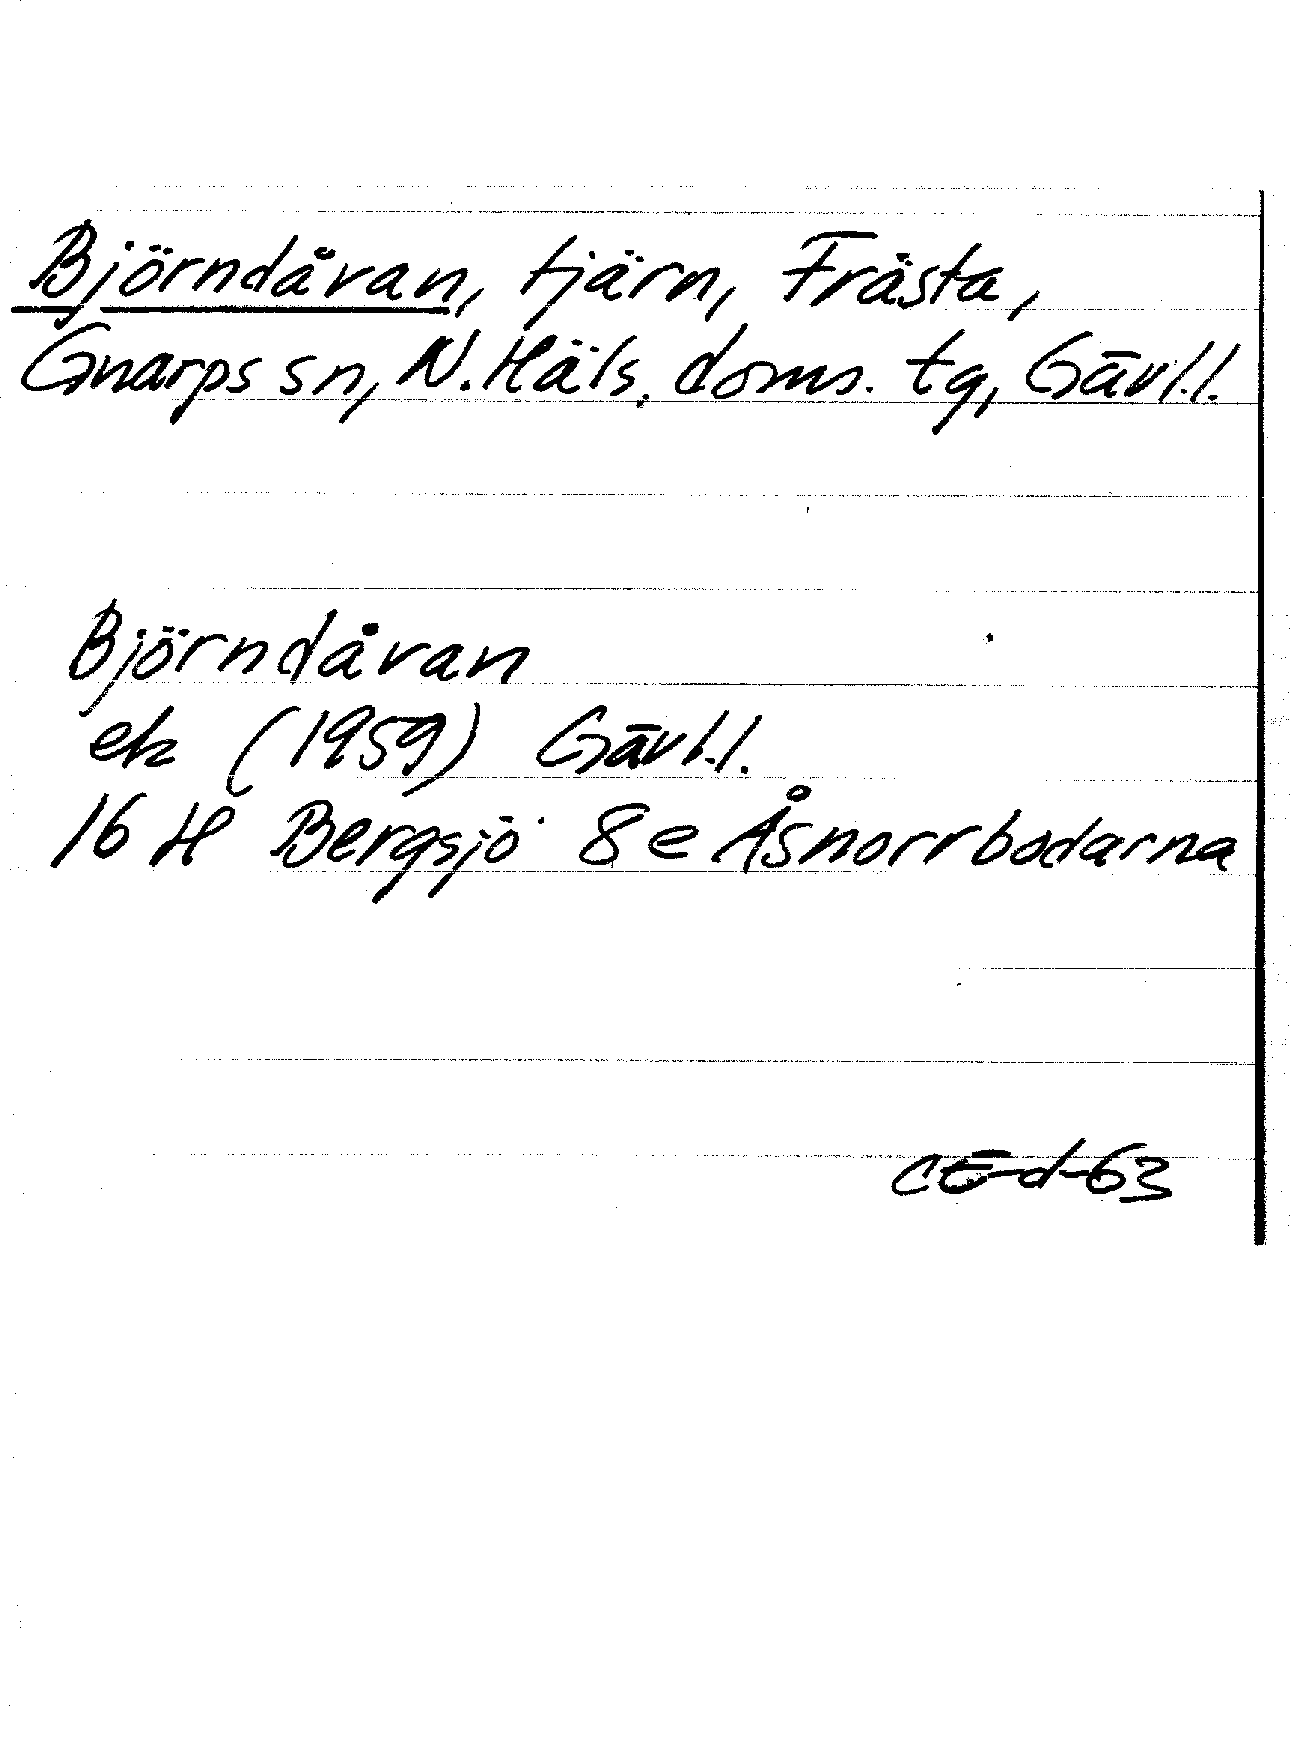 Björndåvan, tjärn, Frästa,
Gnarps sn, N. Häls. doms. tg, Gävl.l.
Björndåvan
ek (1959) Gävl.l.
16 H Bergsjö 8e Åsnorrbodarna
CE-d-63